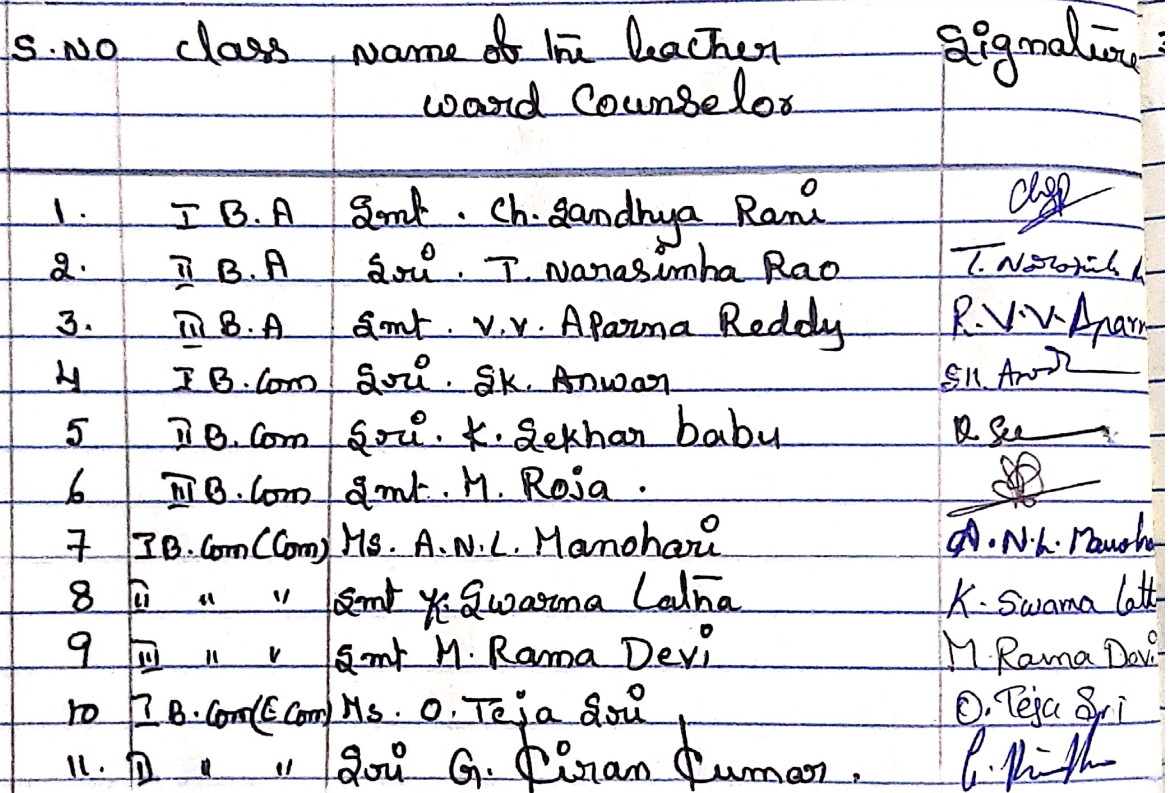 S.NO class Name of the teacher Signature
ward Counselor
1. I B.A Smt. Ch. Sandhya Rani
2. II B.A Sri. T. Narasimha Rao
3. III B.A Smt. V.V. Aparna Reddy R.V.V. Aparn
4 I B.Com Sri. SK. Anwar
5 II B.Com Sri. K. Sekhar babu
6 III B.Com Smt. M. Roja.
7 I B.Com (Com) Ms. A.N.L. Manohari A.N.L. Manoha
8 II " " Smt K. Swarna Latha K. Swarna Lath
9 III " " Smt M. Rama Devi M Rama Devi
10 I B.Com (E Com) Ms. O. Teja Sri O. Teja Sri
11. II " " Sri G. Kiran Kumar.